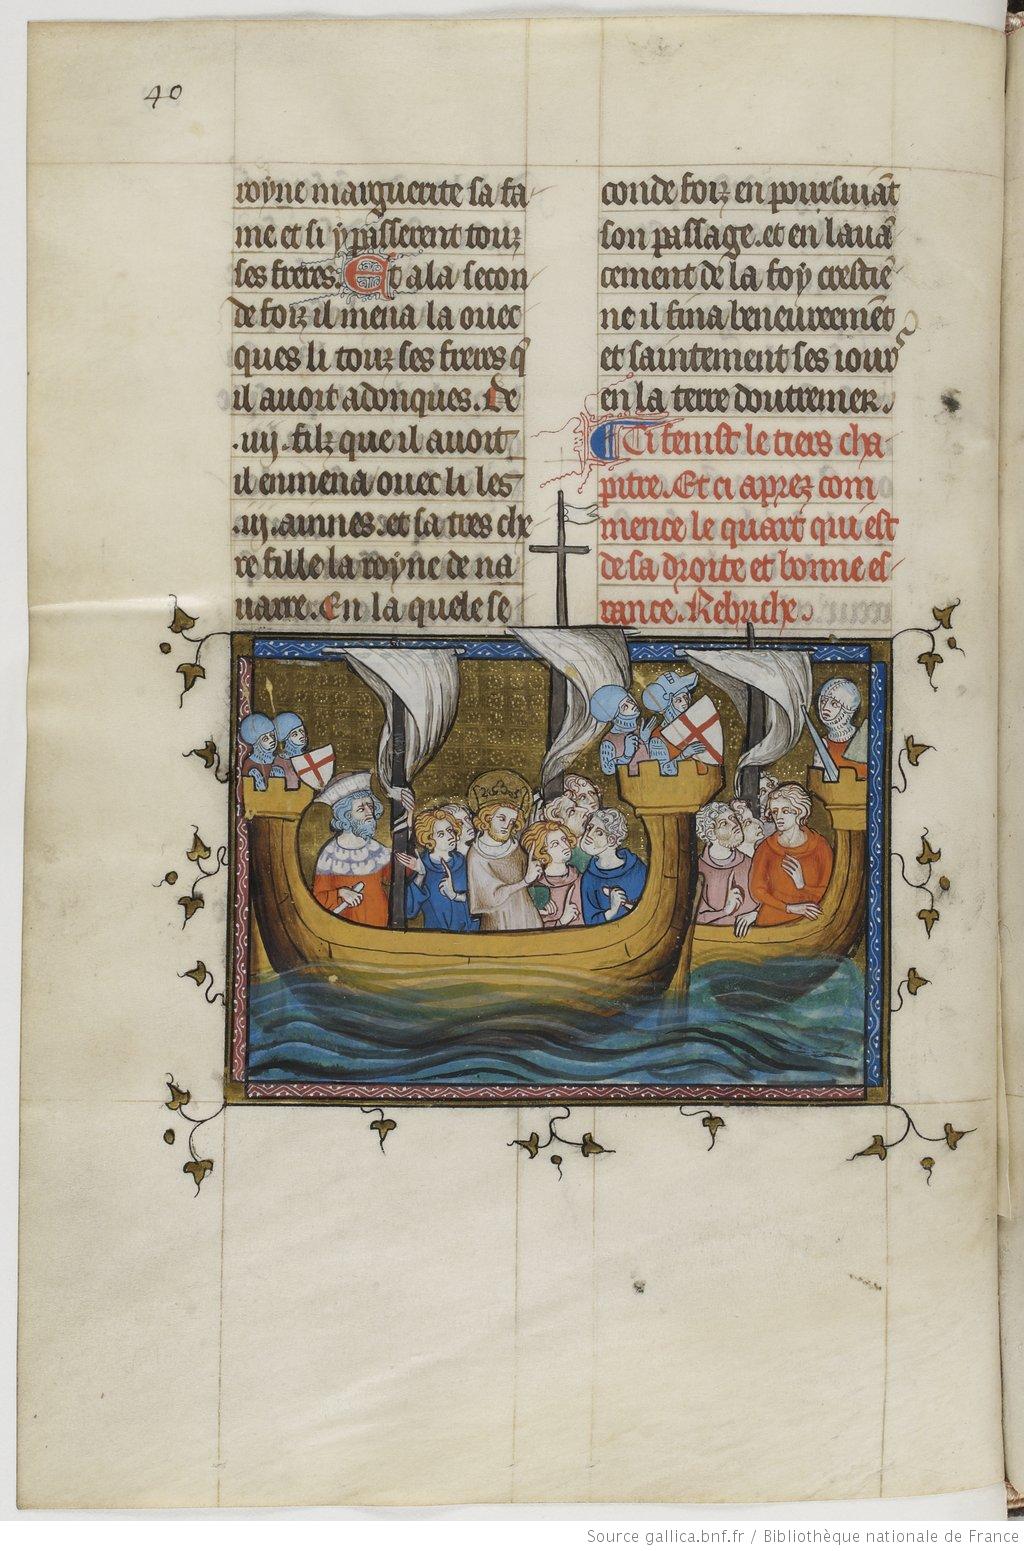 40
royne marguerite sa fa
me et si y passerent touz
ses freres. Et a la secon
de foiz il mena la ouec
ques li touz ses freres q̃
il auoit adonques. De
.iiij. filz que il auoit
il enmena ouec li les
.iij. ainnes. et sa tres che
re fille la royne de na
uarre. En la quele se
conde foiz en poursuiãt
son passage. et en lauã
cement de la foy crestiẽ
ne il fina beneureemẽt
et saintement ses iours
en la terre doutremer.
Ci fenist le tiers cha
pitre. Et ci aprez com
mence le quart qui est
de sa droite et bonne es
rance. Rebriche.
Source gallica.bnf.fr / Bibliothèque nationale de France